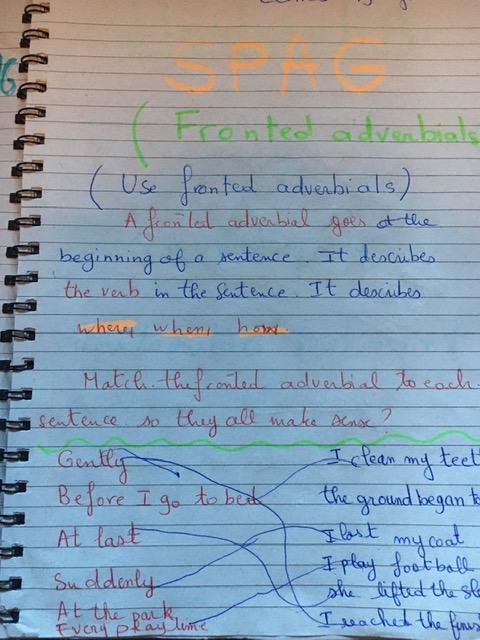 SPAG
(Fronted adverbials
(Use fronted adverbials)
A fronted adverbial goes at the
beginning of a sentence. It describes
the verb in the sentence. It describes
where, when, how.
Match the fronted adverbial to each
sentence so they all make sense?
Gently I clean my teet
Before I go to bed the ground began to
At last I lost my coat
Suddenly I play football
At the park she lifted the sl
Every playtime I reached the finis